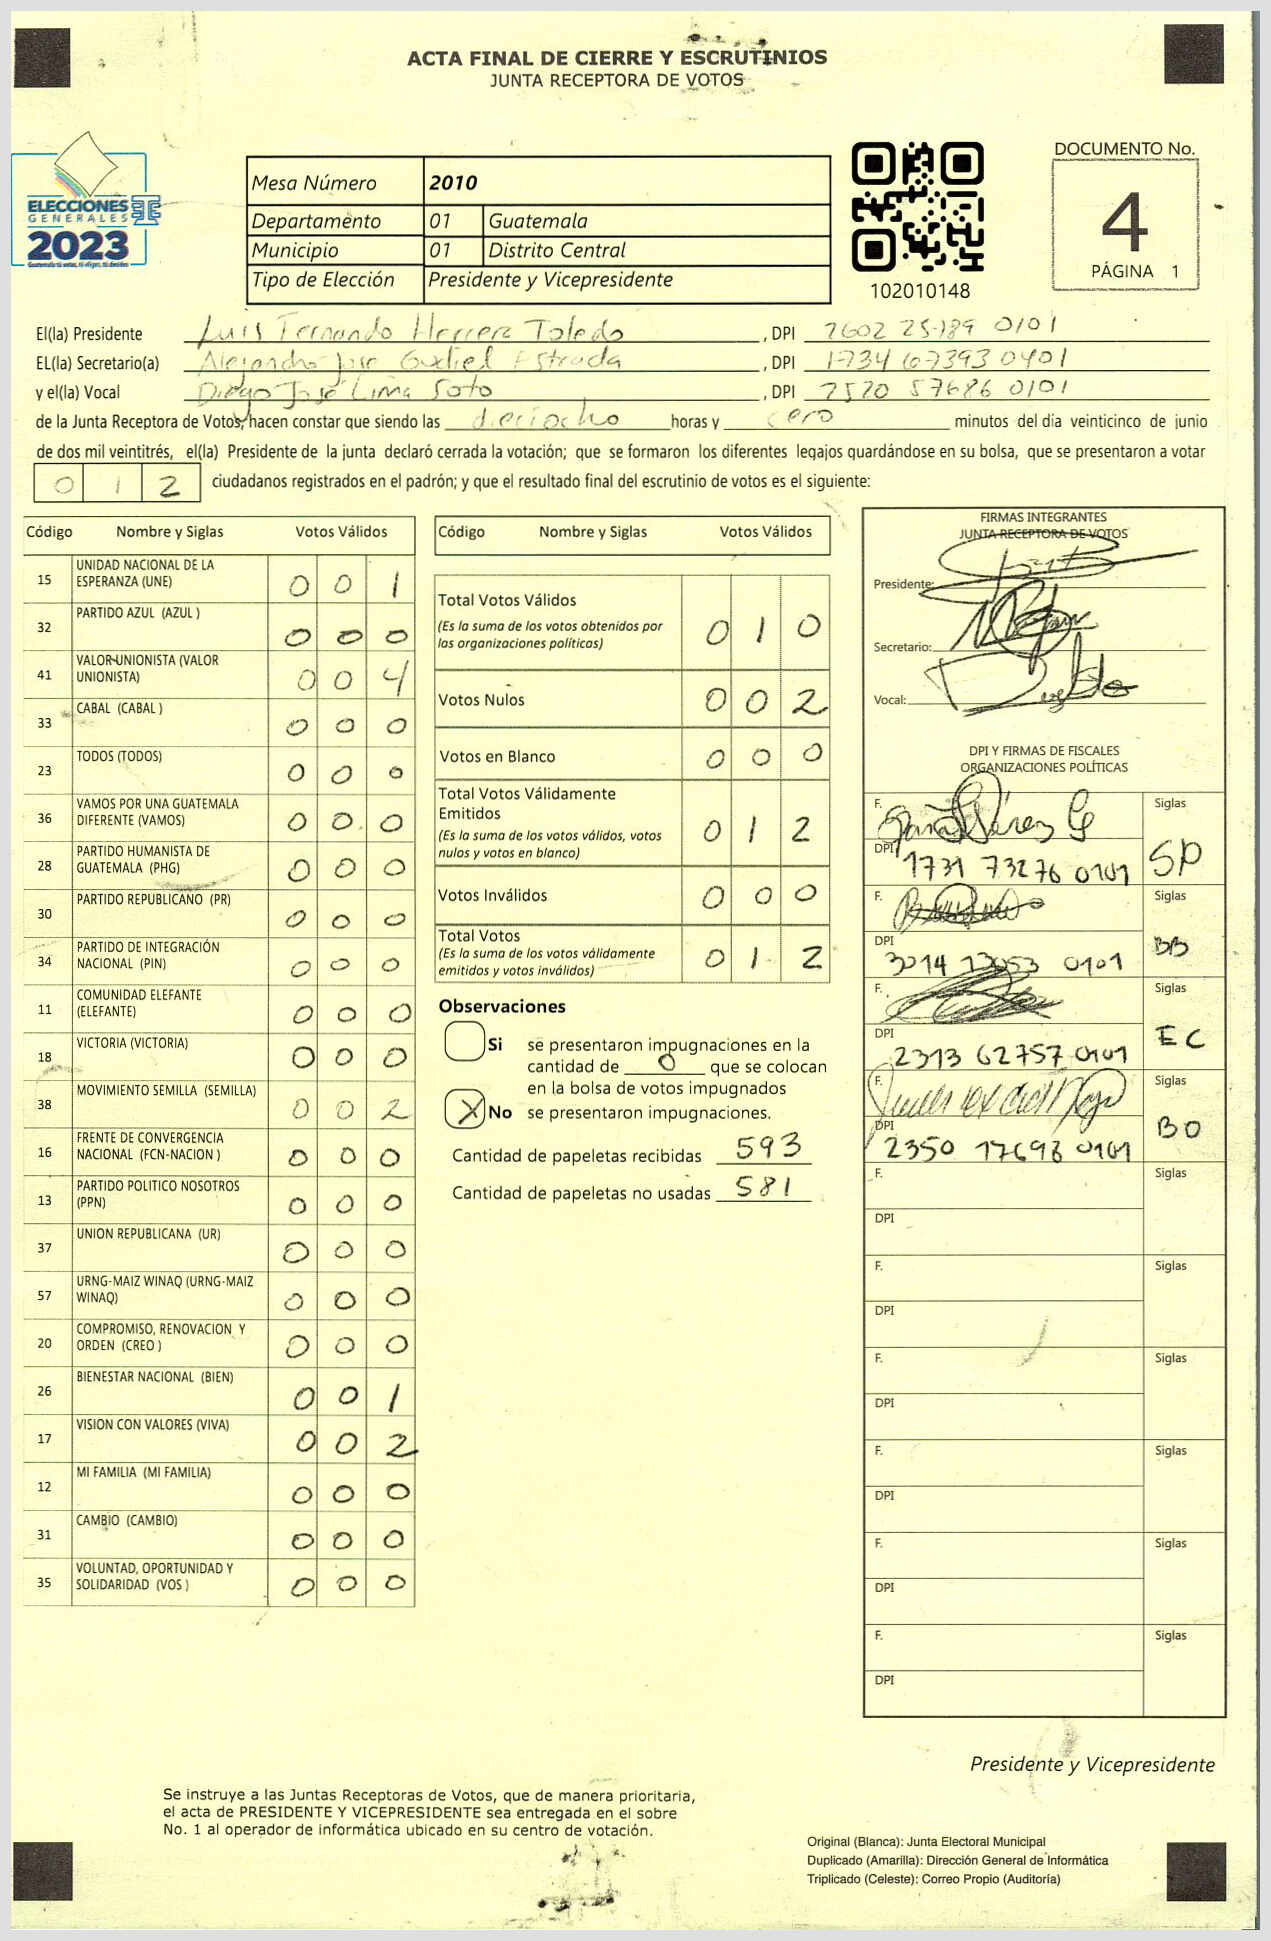 ACTA FINAL DE CIERRE Y ESCRUTINIOS
JUNTA RECEPTORA DE VOTOS
ELECCIONES
GENERALES
2023
Mesa Número 2010
Departamento 01 Guatemala
Municipio 01 Distrito Central
Tipo de Elección Presidente y Vicepresidente
102010148
DOCUMENTO No.
4
PÁGINA 1
El(la) Presidente Luis Fernando Herrera Toledo, DPI 2602 25189 0101
EL(la) Secretario(a) Alejandro José Gudiel Estrada, DPI 1734 67393 0401
y el(la) Vocal Diego José Lima Soto, DPI 2520 57686 0101
de la Junta Receptora de Votos, hacen constar que siendo las dieciocho horas y cero minutos del día veinticinco de junio
de dos mil veintitrés, el(la) Presidente de la junta declaró cerrada la votación; que se formaron los diferentes legajos quardándose en su bolsa, que se presentaron a votar
0 1 2 ciudadanos registrados en el padrón; y que el resultado final del escrutinio de votos es el siguiente:
Código Nombre y Siglas Votos Válidos
15 UNIDAD NACIONAL DE LA
ESPERANZA (UNE) 0 0 1
32 PARTIDO AZUL (AZUL ) 0 0 0
41 VALOR-UNIONISTA (VALOR
UNIONISTA) 0 0 4
33 CABAL (CABAL ) 0 0 0
23 TODOS (TODOS) 0 0 0
36 VAMOS POR UNA GUATEMALA
DIFERENTE (VAMOS) 0 0 0
28 PARTIDO HUMANISTA DE
GUATEMALA (PHG) 0 0 0
30 PARTIDO REPUBLICANO (PR) 0 0 0
34 PARTIDO DE INTEGRACIÓN
NACIONAL (PIN) 0 0 0
11 COMUNIDAD ELEFANTE
(ELEFANTE) 0 0 0
18 VICTORIA (VICTORIA) 0 0 0
38 MOVIMIENTO SEMILLA (SEMILLA) 0 0 2
16 FRENTE DE CONVERGENCIA
NACIONAL (FCN-NACION ) 0 0 0
13 PARTIDO POLITICO NOSOTROS
(PPN) 0 0 0
37 UNION REPUBLICANA (UR) 0 0 0
57 URNG-MAIZ WINAQ (URNG-MAIZ
WINAQ) 0 0 0
20 COMPROMISO, RENOVACION Y
ORDEN (CREO ) 0 0 0
26 BIENESTAR NACIONAL (BIEN) 0 0 1
17 VISION CON VALORES (VIVA) 0 0 2
12 MI FAMILIA (MI FAMILIA) 0 0 0
31 CAMBIO (CAMBIO) 0 0 0
35 VOLUNTAD, OPORTUNIDAD Y
SOLIDARIDAD (VOS ) 0 0 0
Código Nombre y Siglas Votos Válidos
Total Votos Válidos
(Es la suma de los votos obtenidos por
las organizaciones políticas) 0 1 0
Votos Nulos 0 0 2
Votos en Blanco 0 0 0
Total Votos Válidamente
Emitidos
(Es la suma de los votos válidos, votos
nulos y votos en blanco) 0 1 2
Votos Inválidos 0 0 0
Total Votos
(Es la suma de los votos válidamente
emitidos y votos inválidos) 0 1 2
Observaciones
Si se presentaron impugnaciones en la
cantidad de 0 que se colocan
en la bolsa de votos impugnados
X No se presentaron impugnaciones.
Cantidad de papeletas recibidas 593
Cantidad de papeletas no usadas 581
FIRMAS INTEGRANTES
JUNTA RECEPTORA DE VOTOS
Presidente:
Secretario:
Vocal:
DPI Y FIRMAS DE FISCALES
ORGANIZACIONES POLÍTICAS
F. Siglas
DPI 1731 73276 0101 SP
F. Siglas
DPI 3014 13053 0101 BB
F. Siglas
DPI 2313 62757 0101 EC
F. Siglas
DPI 2350 17698 0101 BO
F. Siglas
DPI
F. Siglas
DPI
F. Siglas
DPI
F. Siglas
DPI
F. Siglas
DPI
F. Siglas
DPI
Presidente y Vicepresidente
Se instruye a las Juntas Receptoras de Votos, que de manera prioritaria,
el acta de PRESIDENTE Y VICEPRESIDENTE sea entregada en el sobre
No. 1 al operador de informática ubicado en su centro de votación.
Original (Blanca): Junta Electoral Municipal
Duplicado (Amarilla): Dirección General de Informática
Triplicado (Celeste): Correo Propio (Auditoría)